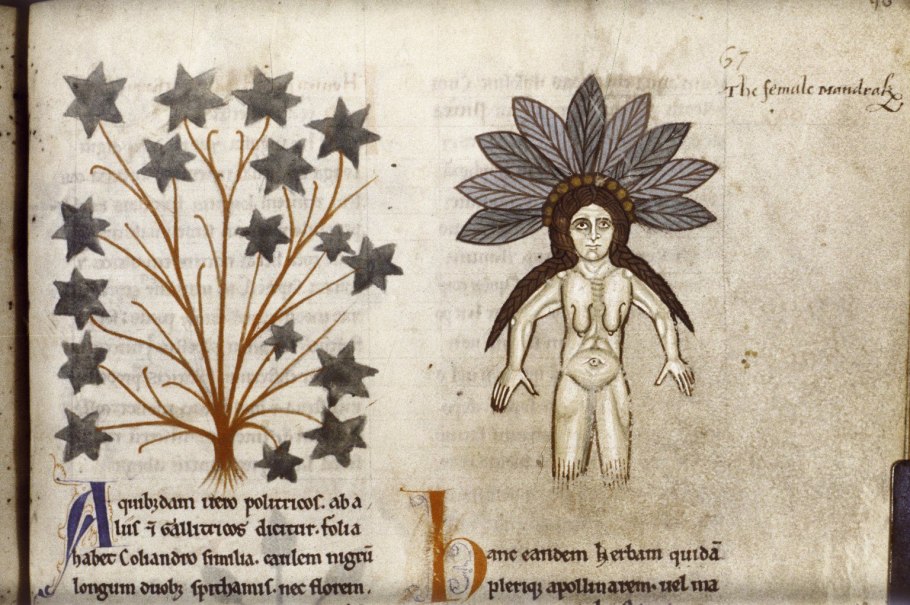 67
The female Mandrak
A quibzdam uero politricos. ab a
luis ⁊ Gallitricos dicitur. folia
habet Coliandro similia. caulem nigrū
longum duobz spithamis. nec florem.
hanc eandem herbam quidā
pleriqz apollinarem. uel ma